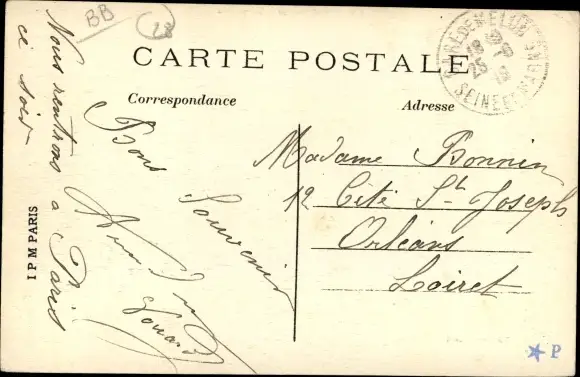 BB
28
CARTE POSTALE
Correspondance
Adresse
GARE DE MELUN
SEINE ET MARNE
Nous rentrons a Paris
ce soir
Bons
Souvenirs
Madame Bonnin
12 Cité St. Joseph
Orléans
Loiret
I P M PARIS
P